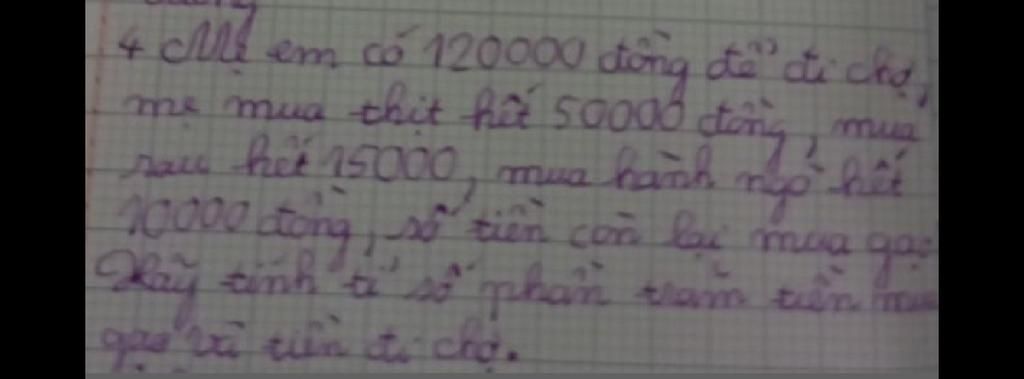 4 Mẹ em có 120000 đồng để đi chợ,
mẹ mua thịt hết 50000 đồng, mua
rau hết 15000, mua hành ngò hết
10000 đồng, số tiền còn lại mua gạo
Hãy tính tỉ số phần trăm tiền mua
gạo và tiền đi chợ.